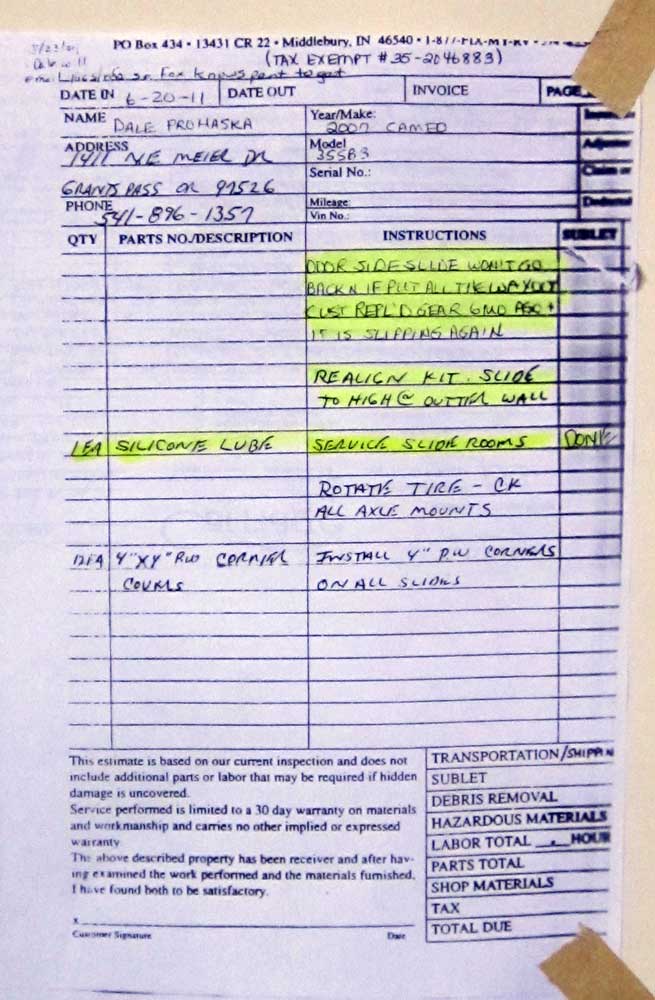 PO Box 434 • 13431 CR 22 • Middlebury, IN 46540 •
(TAX EXEMPT # 35-2046883)
DATE IN 6-20-11 DATE OUT INVOICE PAGE
NAME DALE PROHASKA Year/Make: 2007 CAMEO
ADDRESS 1411 NE MEIER DR Model 35SB3
Serial No.:
GRANTS PASS OR 97526
PHONE 541-896-1357 Mileage:
Vin No.:
QTY PARTS NO./DESCRIPTION INSTRUCTIONS SUBLET
DOOR SIDE SLIDE WON'T GO
BACK N IF PUT ALL THE WAY OUT
CUST REPL'D GEAR 6MO AGO +
IT IS SLIPPING AGAIN
REALIGN KIT. SLIDE
TO HIGH @ OUTTER WALL
1EA SILICONE LUBE SERVICE SLIDE ROOMS DONE
ROTATE TIRE - CK
ALL AXLE MOUNTS
12EA 4" X 4" CORNER INSTALL 4" CORNERS
COVERS ON ALL SLIDES
This estimate is based on our current inspection and does not
include additional parts or labor that may be required if hidden
damage is uncovered.
Service performed is limited to a 30 day warranty on materials
and workmanship and carries no other implied or expressed
warranty
The above described property has been receiver and after hav-
ing examined the work performed and the materials furnished,
I have found both to be satisfactory.
x
Customer Signature Date
TRANSPORTATION/SHIPPIN
SUBLET
DEBRIS REMOVAL
HAZARDOUS MATERIALS
LABOR TOTAL HOUR
PARTS TOTAL
SHOP MATERIALS
TAX
TOTAL DUE